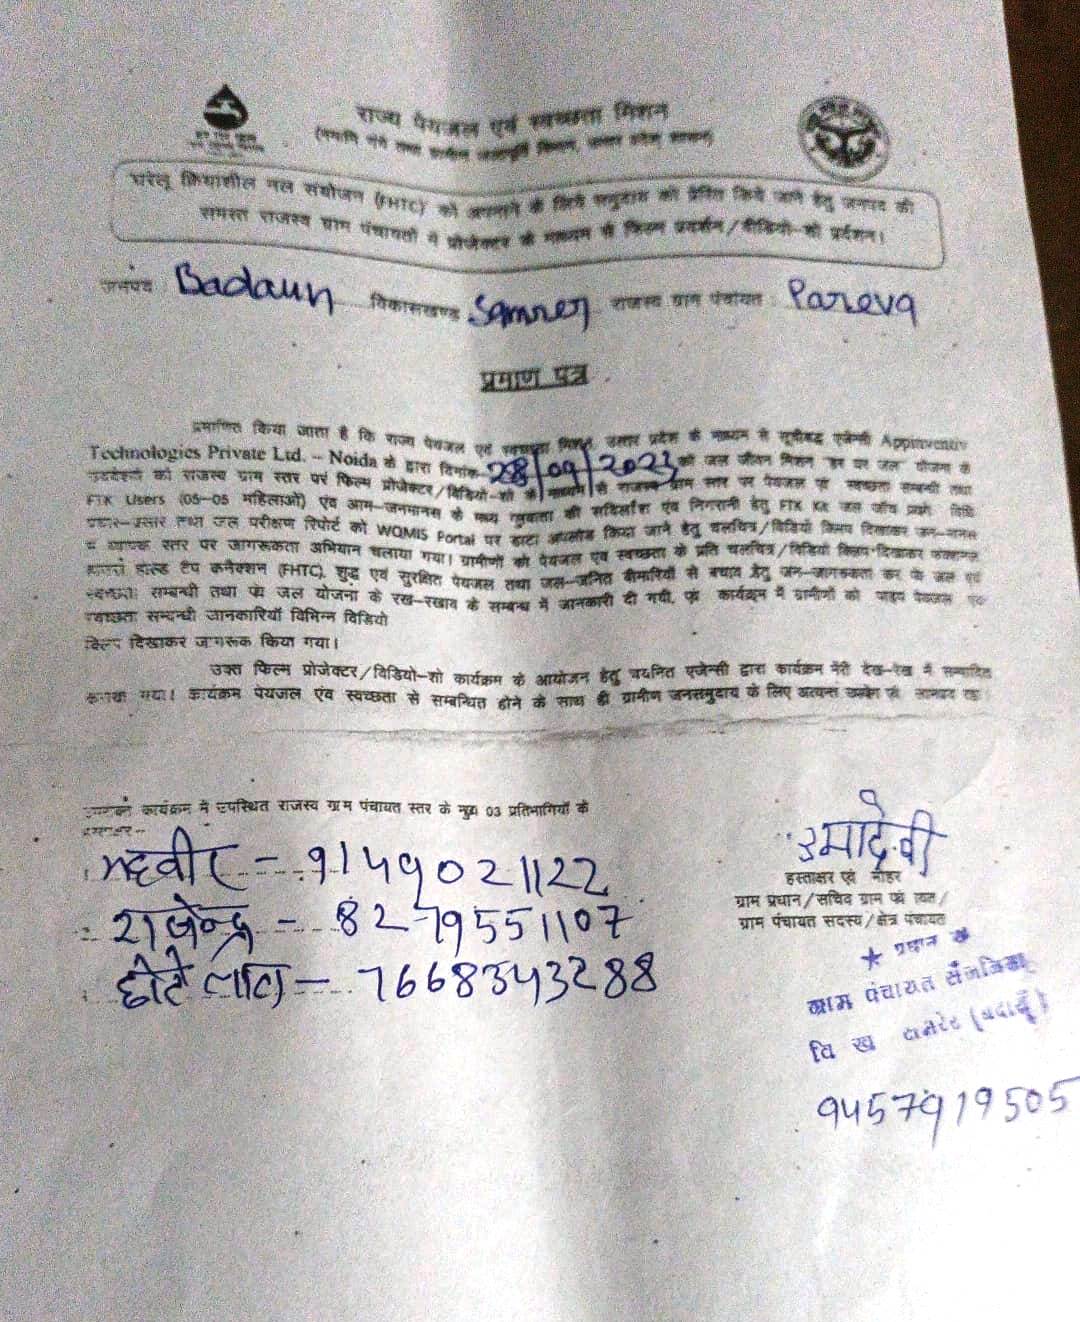 राज्य पेयजल एवं स्वच्छता मिशन
(नमामि गंगे तथा ग्रामीण जलापूर्ति विभाग, उत्तर प्रदेश सरकार)
घरेलू क्रियाशील नल संयोजन (FHTC) को अपनाने के लिये समुदाय को प्रेरित किये जाने हेतु जनपद की
समस्त राजस्व ग्राम पंचायतों में प्रोजेक्टर के माध्यम से फिल्म प्रदर्शन/वीडियो-शो प्रर्दशन।
जनपद : Badaun विकासखण्ड Samrer राजस्व ग्राम पंचायत : Pareva
प्रमाण पत्र
प्रमाणित किया जाता है कि राज्य पेयजल एवं स्वच्छता मिशन, उत्तर प्रदेश के माध्यम से सूचीबद्ध एजेन्सी Appinventiv
Technologies Private Ltd. – Noida के द्वारा दिनांक 28/09/2023 को जल जीवन मिशन "हर घर जल" योजना के
उददेश्यों को राजस्व ग्राम स्तर पर फिल्म प्रोजेक्टर/विडियो-शो के माध्यम से राजस्व ग्राम स्तर पर पेयजल एवं स्वच्छता सम्बन्धी तथा
FTK Users (05-05 महिलाओं) एंव आम-जनमानस के मध्य गुणवत्ता की सर्विलांस एंव निगरानी हेतु FTK Kit जल जाँच प्रयोग विधि
प्रचार-प्रसार तथा जल परीक्षण रिपोर्ट को WQMIS Portal पर डाटा अपलोड किया जाने हेतु चलचित्र/विडियो क्लिप दिखाकर जन-मानस
में व्यापक स्तर पर जागरूकता अभियान चलाया गया। ग्रामीणों को पेयजल एंव स्वच्छता के प्रति चलचित्र/विडियो क्लिप-दिखाकर फंक्शनल
हाउस होल्ड टैप कनैक्शन (FHTC), शुद्ध एवं सुरक्षित पेयजल तथा जल-जनित बीमारियों से बचाव हेतु जन-जागरूकता कर के जल एवं
स्वच्छता सम्बन्धी तथा एंव जल योजना के रख-रखाव के सम्बन्ध में जानकारी दी गयी, एंव कार्यक्रम में ग्रामीणों को पाइप पेयजल एंव
स्वच्छता सम्बन्धी जानकारियाँ विभिन्न विडियो
क्लिप दिखाकर जागरूक किया गया।
उक्त फिल्म प्रोजेक्टर/विडियो-शो कार्यक्रम के आयोजन हेतु चयनित एजेन्सी द्वारा कार्यक्रम मेरी देख-रेख में सम्पादित
कराया गया। कार्यक्रम पेयजल एंव स्वच्छता से सम्बन्धित होने के साथ ही ग्रामीण जनसमुदाय के लिए अत्यन्त उपयोगी
कार्यक्रम में उपस्थित राजस्व ग्राम पंचायत स्तर के मुख्य 03 प्रतिभागियों के
हस्ताक्षर--
महवीर - 9149021122
राजेन्द्र - 8279551107
छोटे लाल - 7668343288
उमादेवी
हस्ताक्षर एवं मोहर
ग्राम प्रधान/सचिव ग्राम पंचायत/
ग्राम पंचायत सदस्य/क्षेत्र पंचायत
★ प्रधान
ग्राम पंचायत
वि ख (बदायूँ)
9457919505